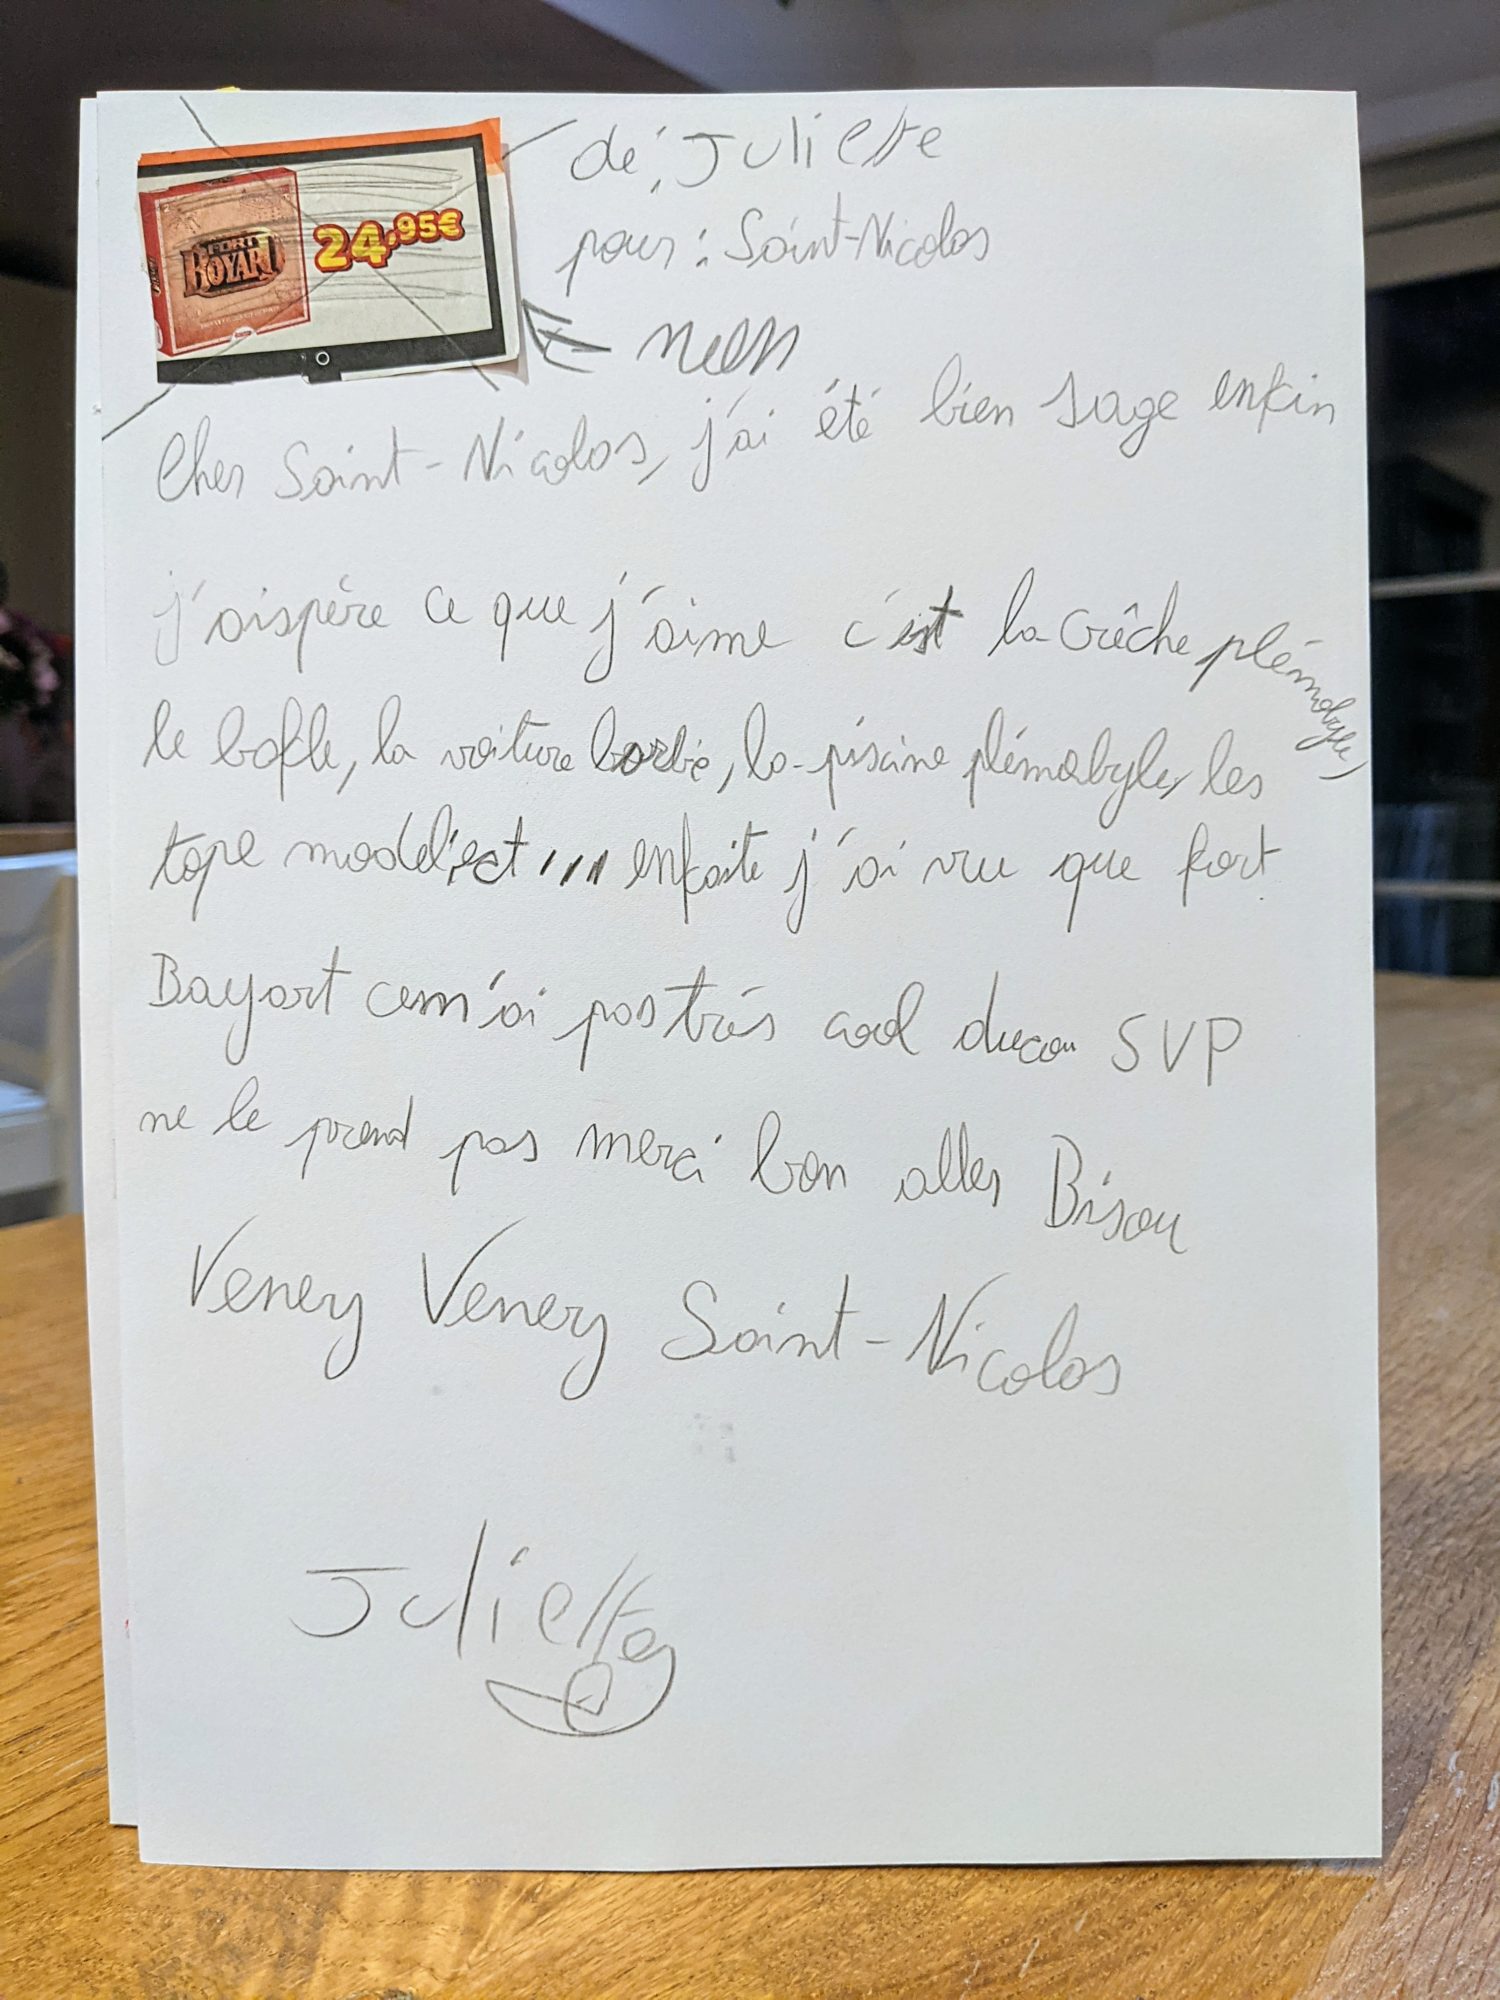 dé; Juliette
pour : Saint-Nicolas
FORT
BOYARD
24,95€
Cher Saint-Nicolas, j'ai été bien sage enfin
j'aispère ce que j'aime c'est la crêche plémobyle,
le bafle, la voiture barbie, la piscine plémobyle, les
tope model, ect,,, enfaite j'ai vu que fort
Bayart cem'ai pas très cool ducou SVP
ne le prend pas merci bon aller Bisou
Venery Venery Saint-Nicolas
Juliette